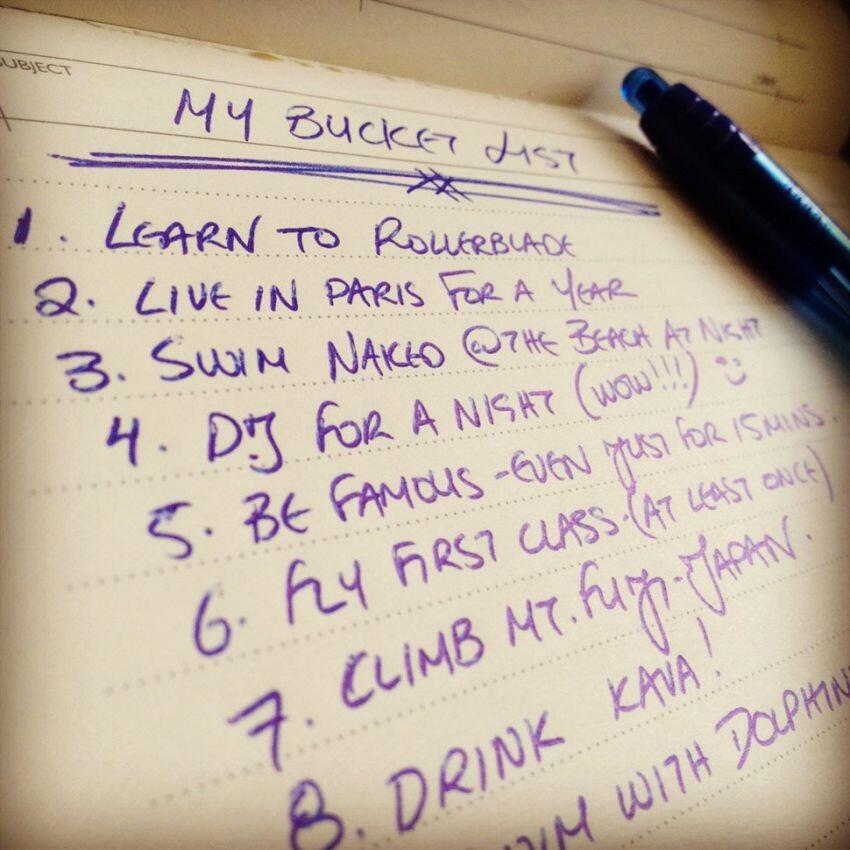 SUBJECT
MY BUCKET LIST
1. LEARN TO ROLLERBLADE
2. LIVE IN PARIS FOR A YEAR
3. SWIM NAKED @ THE BEACH AT NIGHT
4. DJ FOR A NIGHT (WOW!!!) :)
5. BE FAMOUS - EVEN JUST FOR 15 MINS.
6. FLY FIRST CLASS. (AT LEAST ONCE)
7. CLIMB MT. FUJI. JAPAN.
8. DRINK KAVA!
WITH DOLPHIN